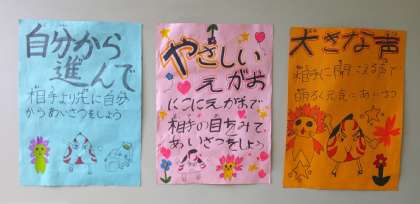 自分から
進んで
相手より先に自分
からあいさつをしよう
やさしい
えがお
にこにこえがおで
相手の目をみて、
あいさつをしよう
大きな声
相手に聞こえる声で
明るく元気にあいさつ